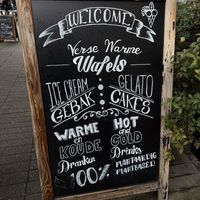 WELCOME
Verse Warme
Wafels
ICE CREAM GELATO
GEBAK CAKES
WARME HOT
en and
KOUDE COLD
Dranken Drinks
100% PLANTAARDIG
PLANTBASED!